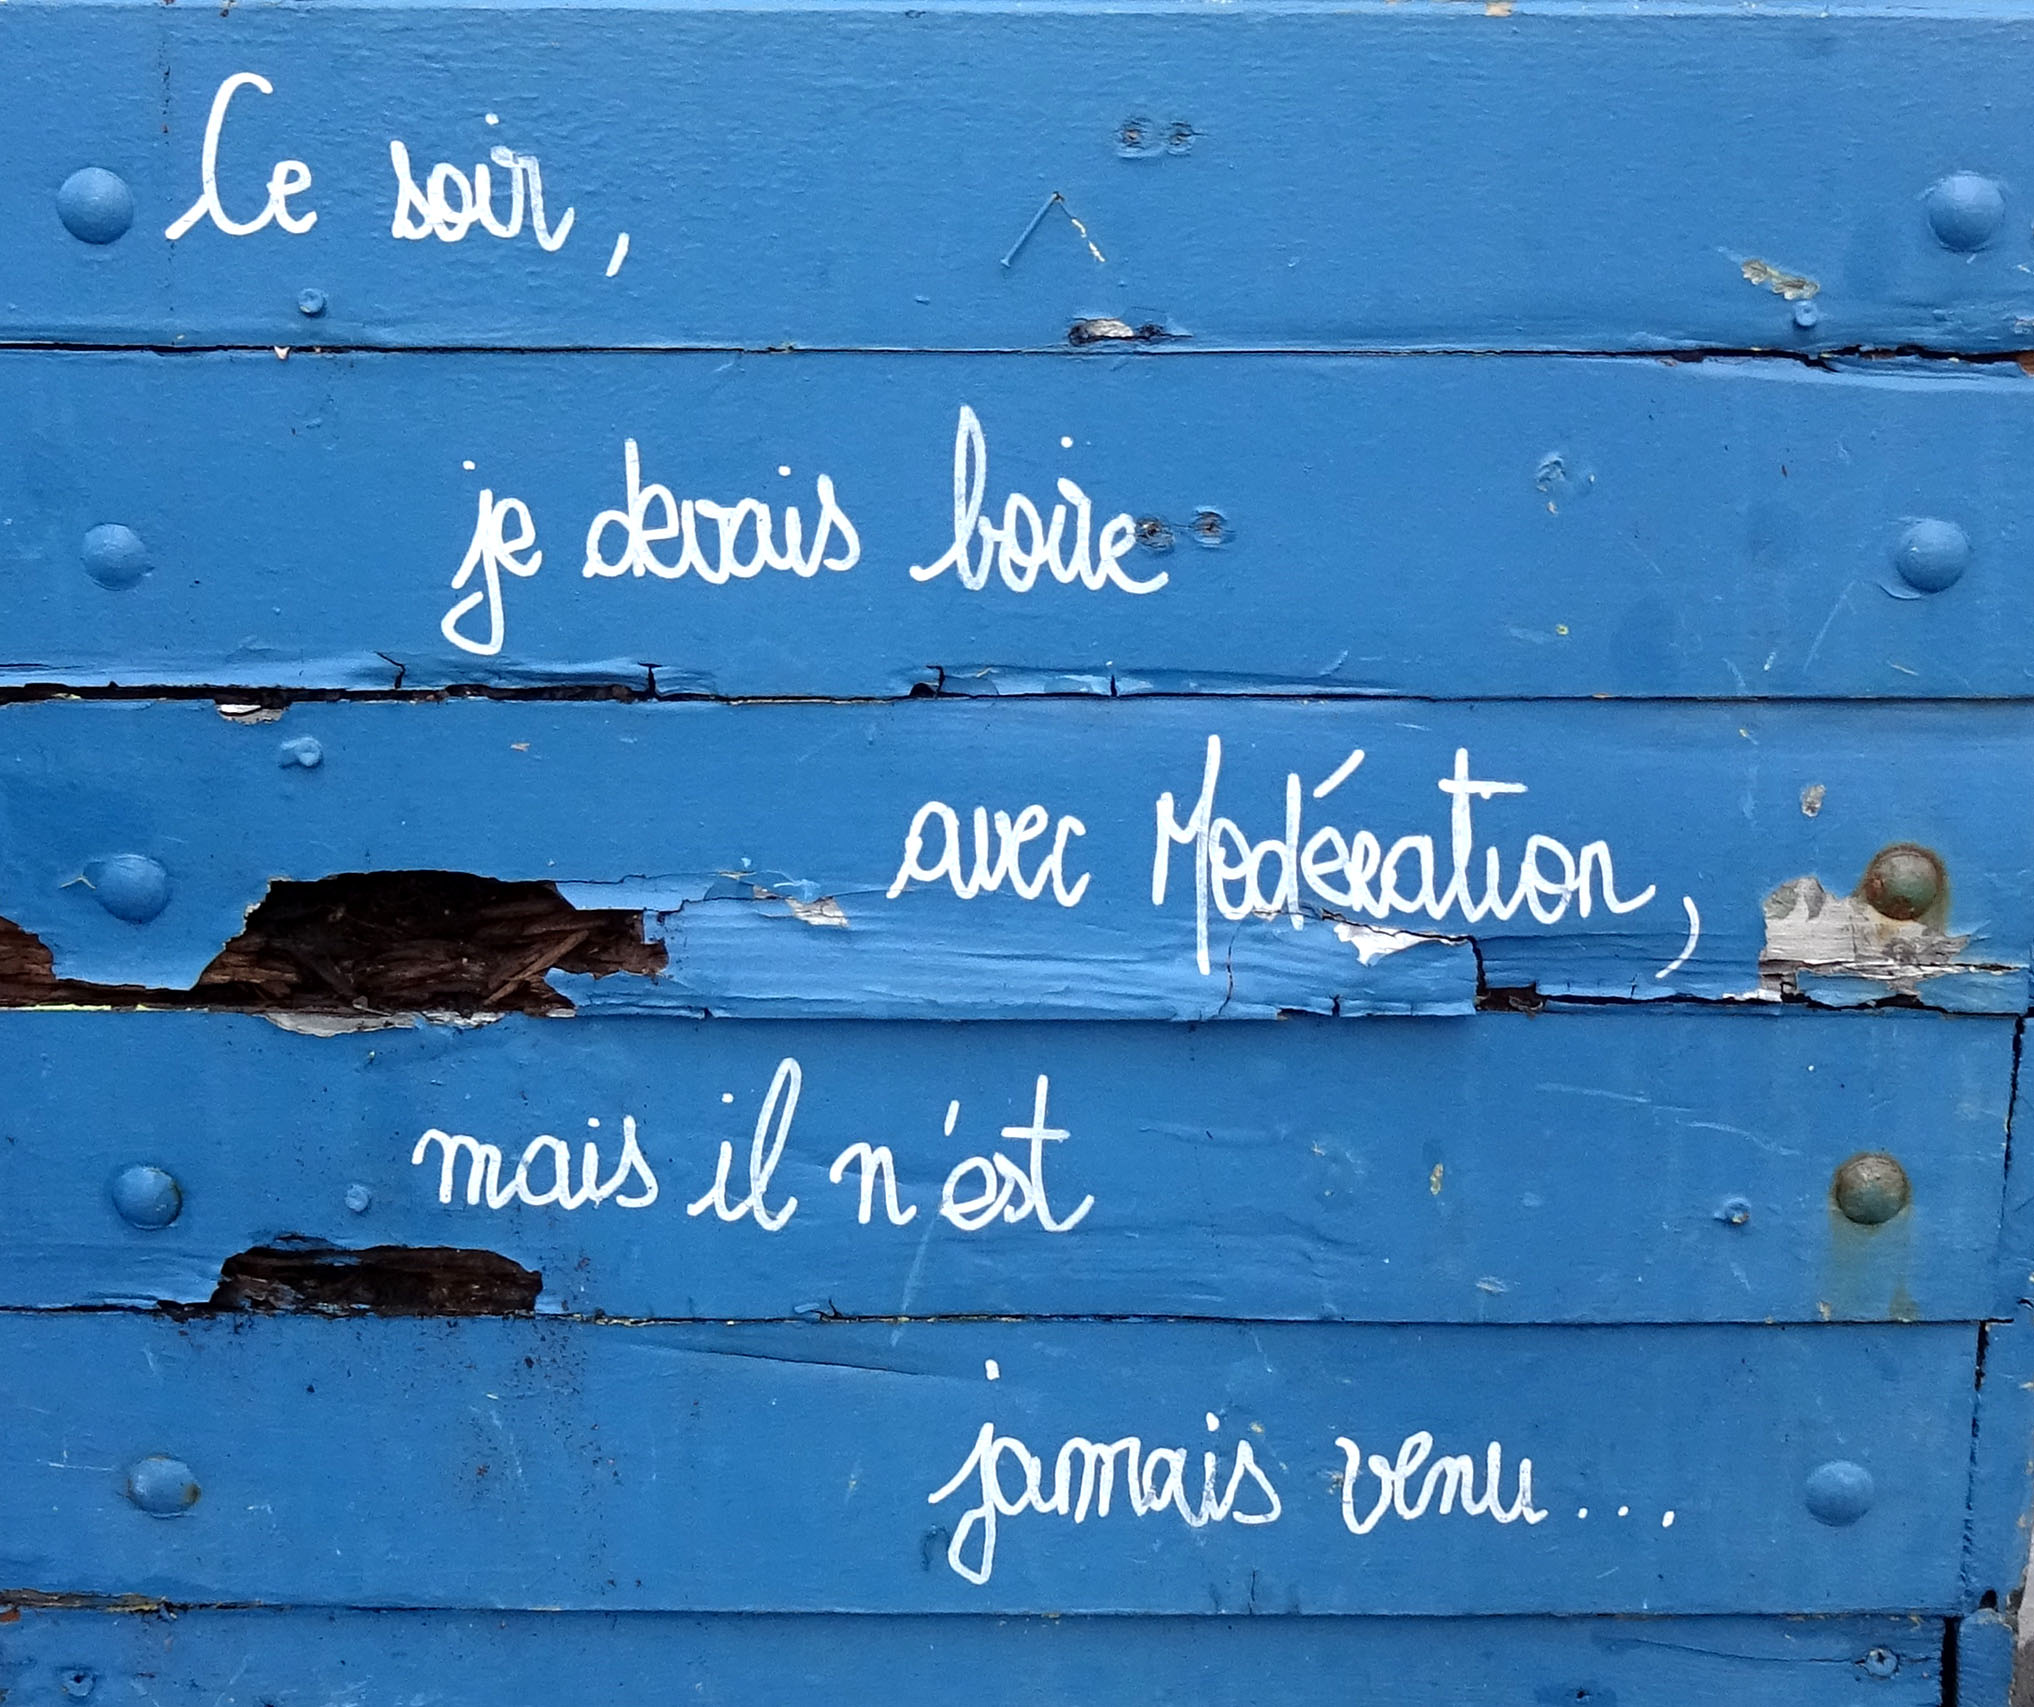 Ce soir,
je devais boire
avec Modération,
mais il n'est
jamais venu...